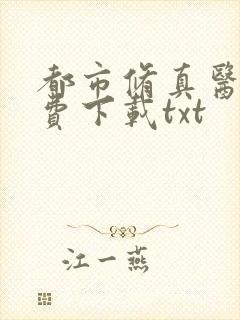 都市脩真醫
費下載txt
江一燕